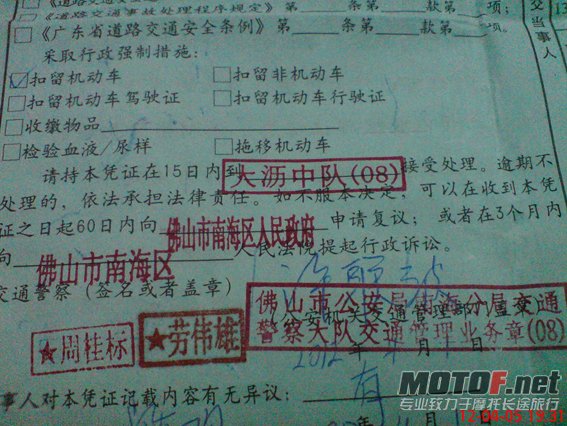 《道路交通事故处理程序规定》第 条第 款第 项；
《广东省道路交通安全条例》第 条第 款第 项；
采取行政强制措施：
扣留机动车 扣留非机动车
扣留机动车驾驶证 扣留机动车行驶证
收缴物品
检验血液/尿样 拖移机动车
请持本凭证在15日内到大沥中队(08)接受处理。逾期不
处理的，依法承担法律责任。如不服本决定，可以在收到本凭
证之日起60日内向佛山市南海区人民政府申请复议；或者在3个月内
向佛山市南海区人民法院提起行政诉讼。
交通警察（签名或者盖章）
佛山市公安局南海分局交通
警察大队交通管理业务章(08)
公安机关交通管理部门（盖章）
周桂标 劳伟雄
2012年 月 日
事人对本凭证记载内容有无异议： 有
年 月
交当事人
MOTOF.net
专业致力于摩托长途旅行